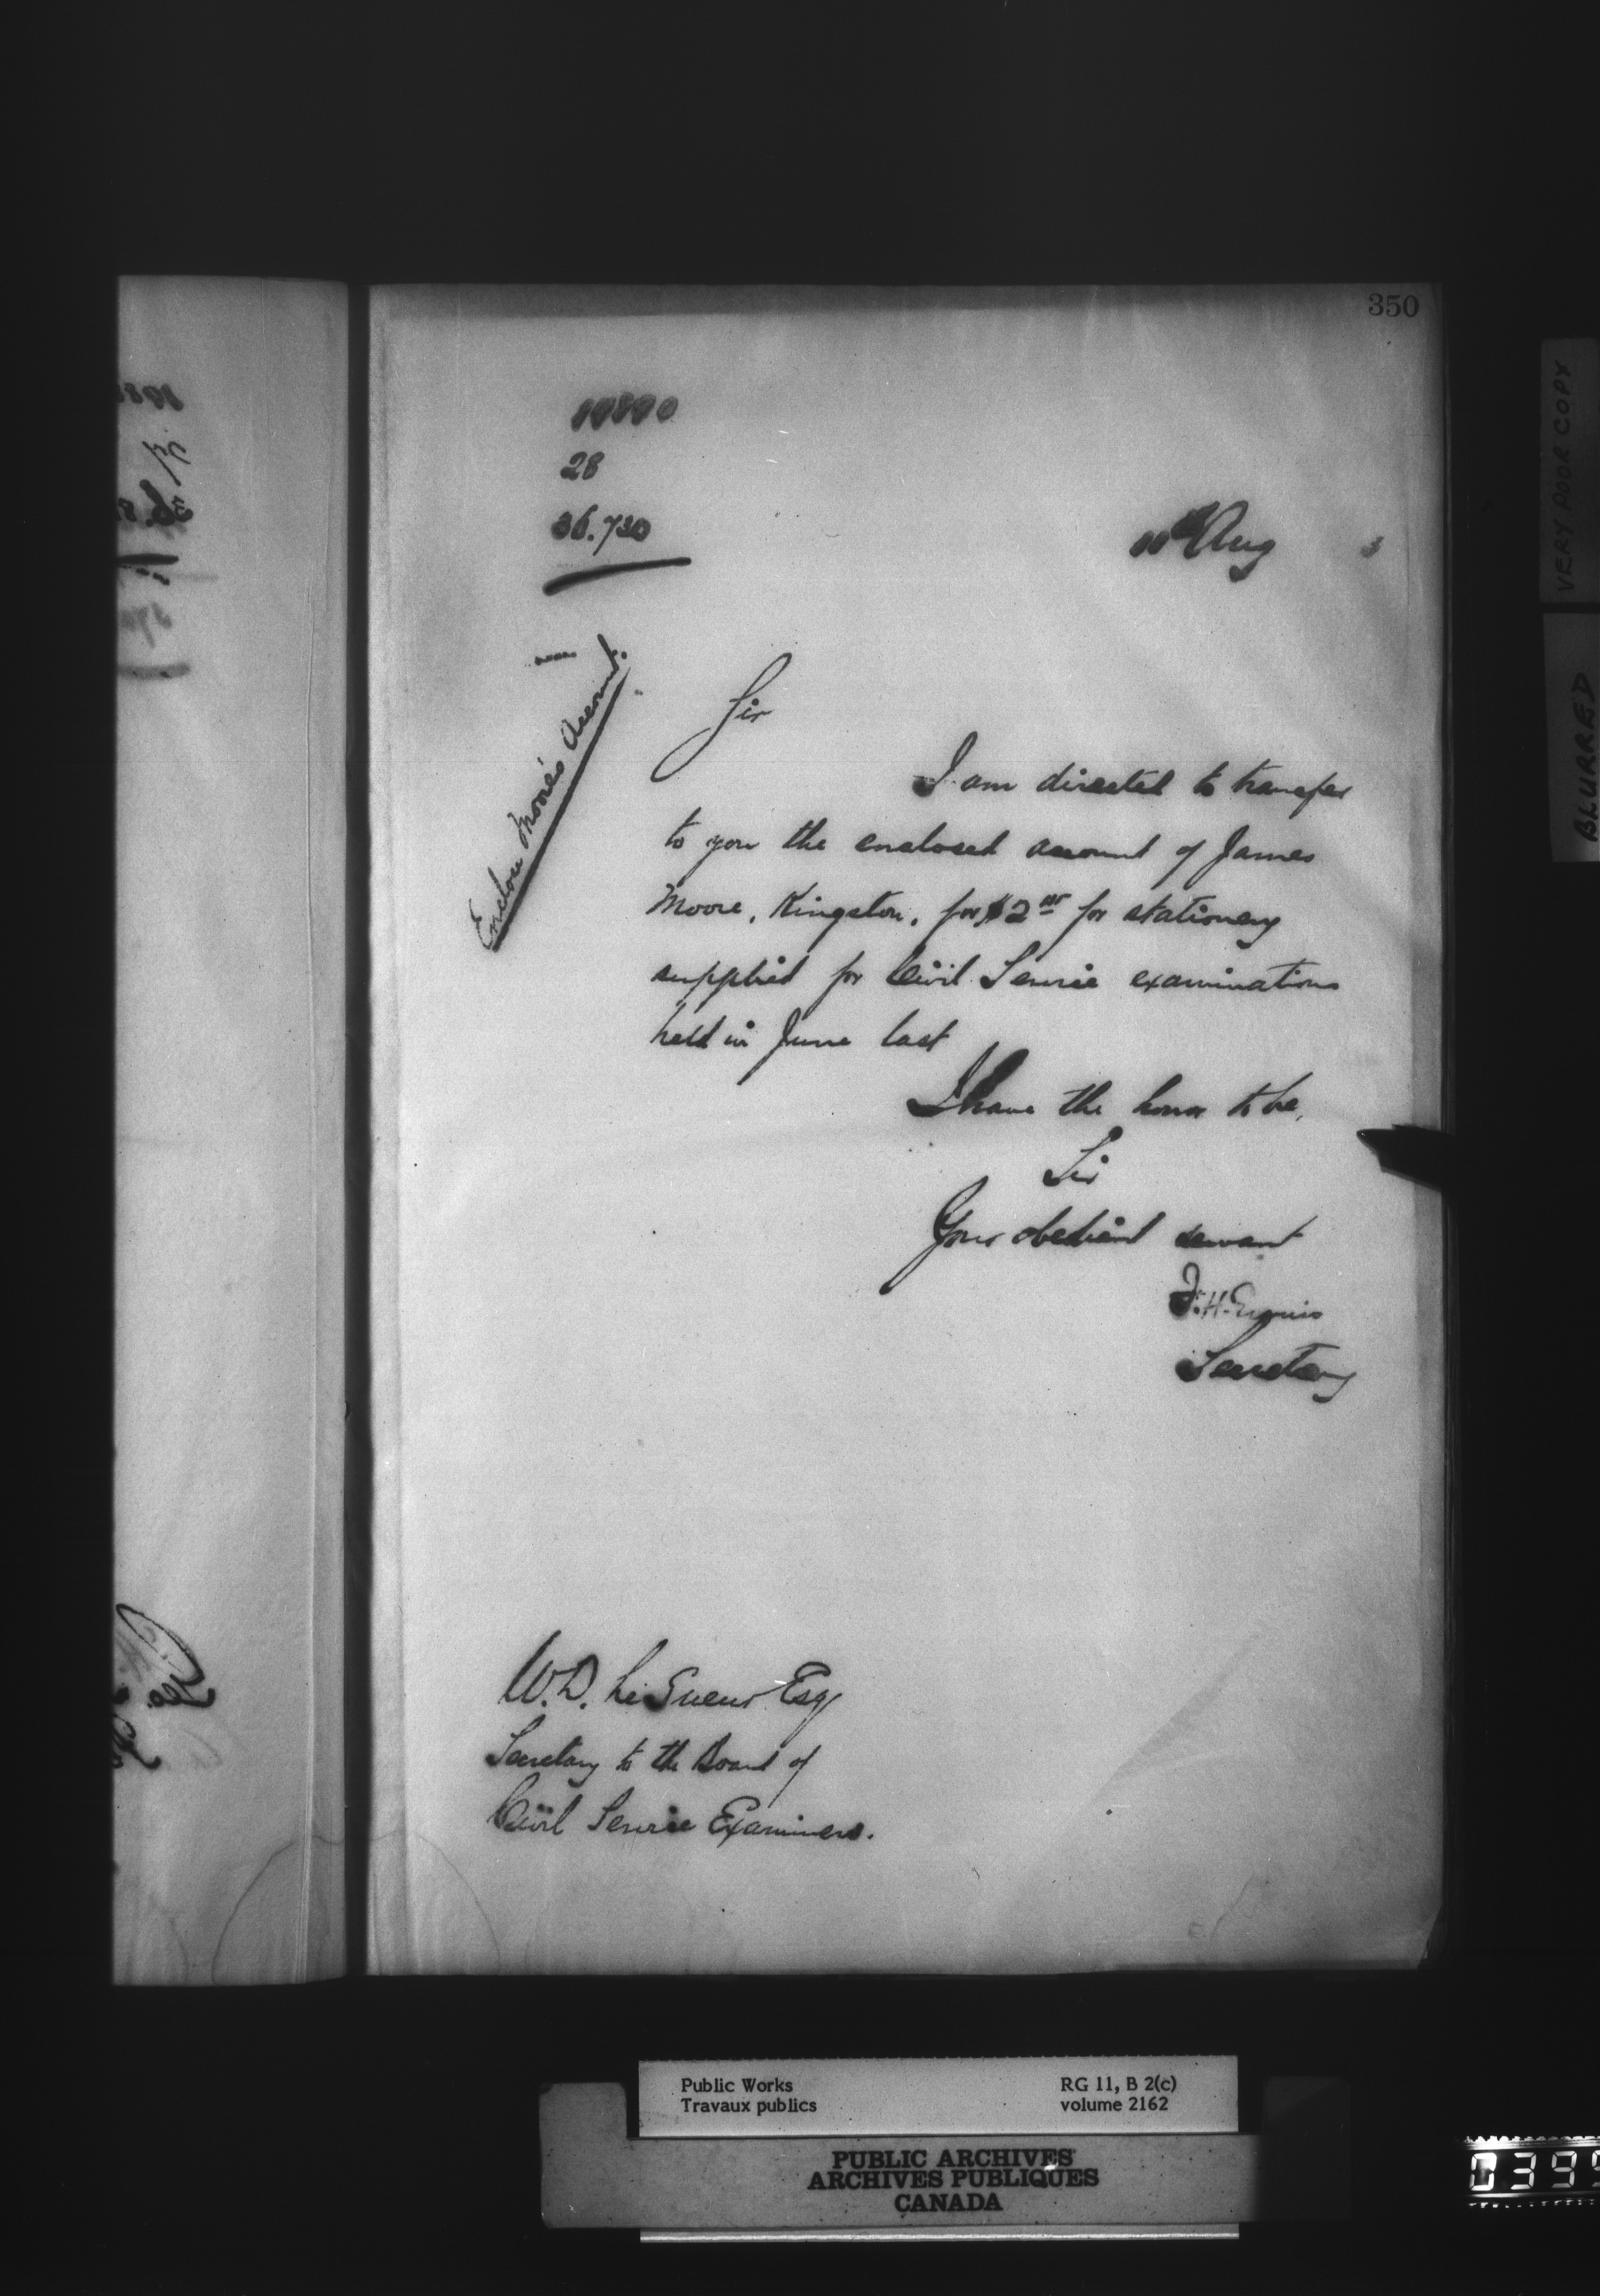 350
28
36.730
Aug 3
Enclose Moore's Account.
Sir
I am directed to transfer
to you the enclosed account of James
Moore, Kingston, for $2 for stationery
supplied for Civil Service examinations
held in June last
I have the honor to be,
Sir
Your obedient servant
F. H. Ennis
Secretary
W. D. LeSueur Esq
Secretary to the Board of
Civil Service Examiners.
VERY POOR COPY
BLURRED
Public Works
Travaux publics
RG 11, B 2(c)
volume 2162
PUBLIC ARCHIVES
ARCHIVES PUBLIQUES
CANADA